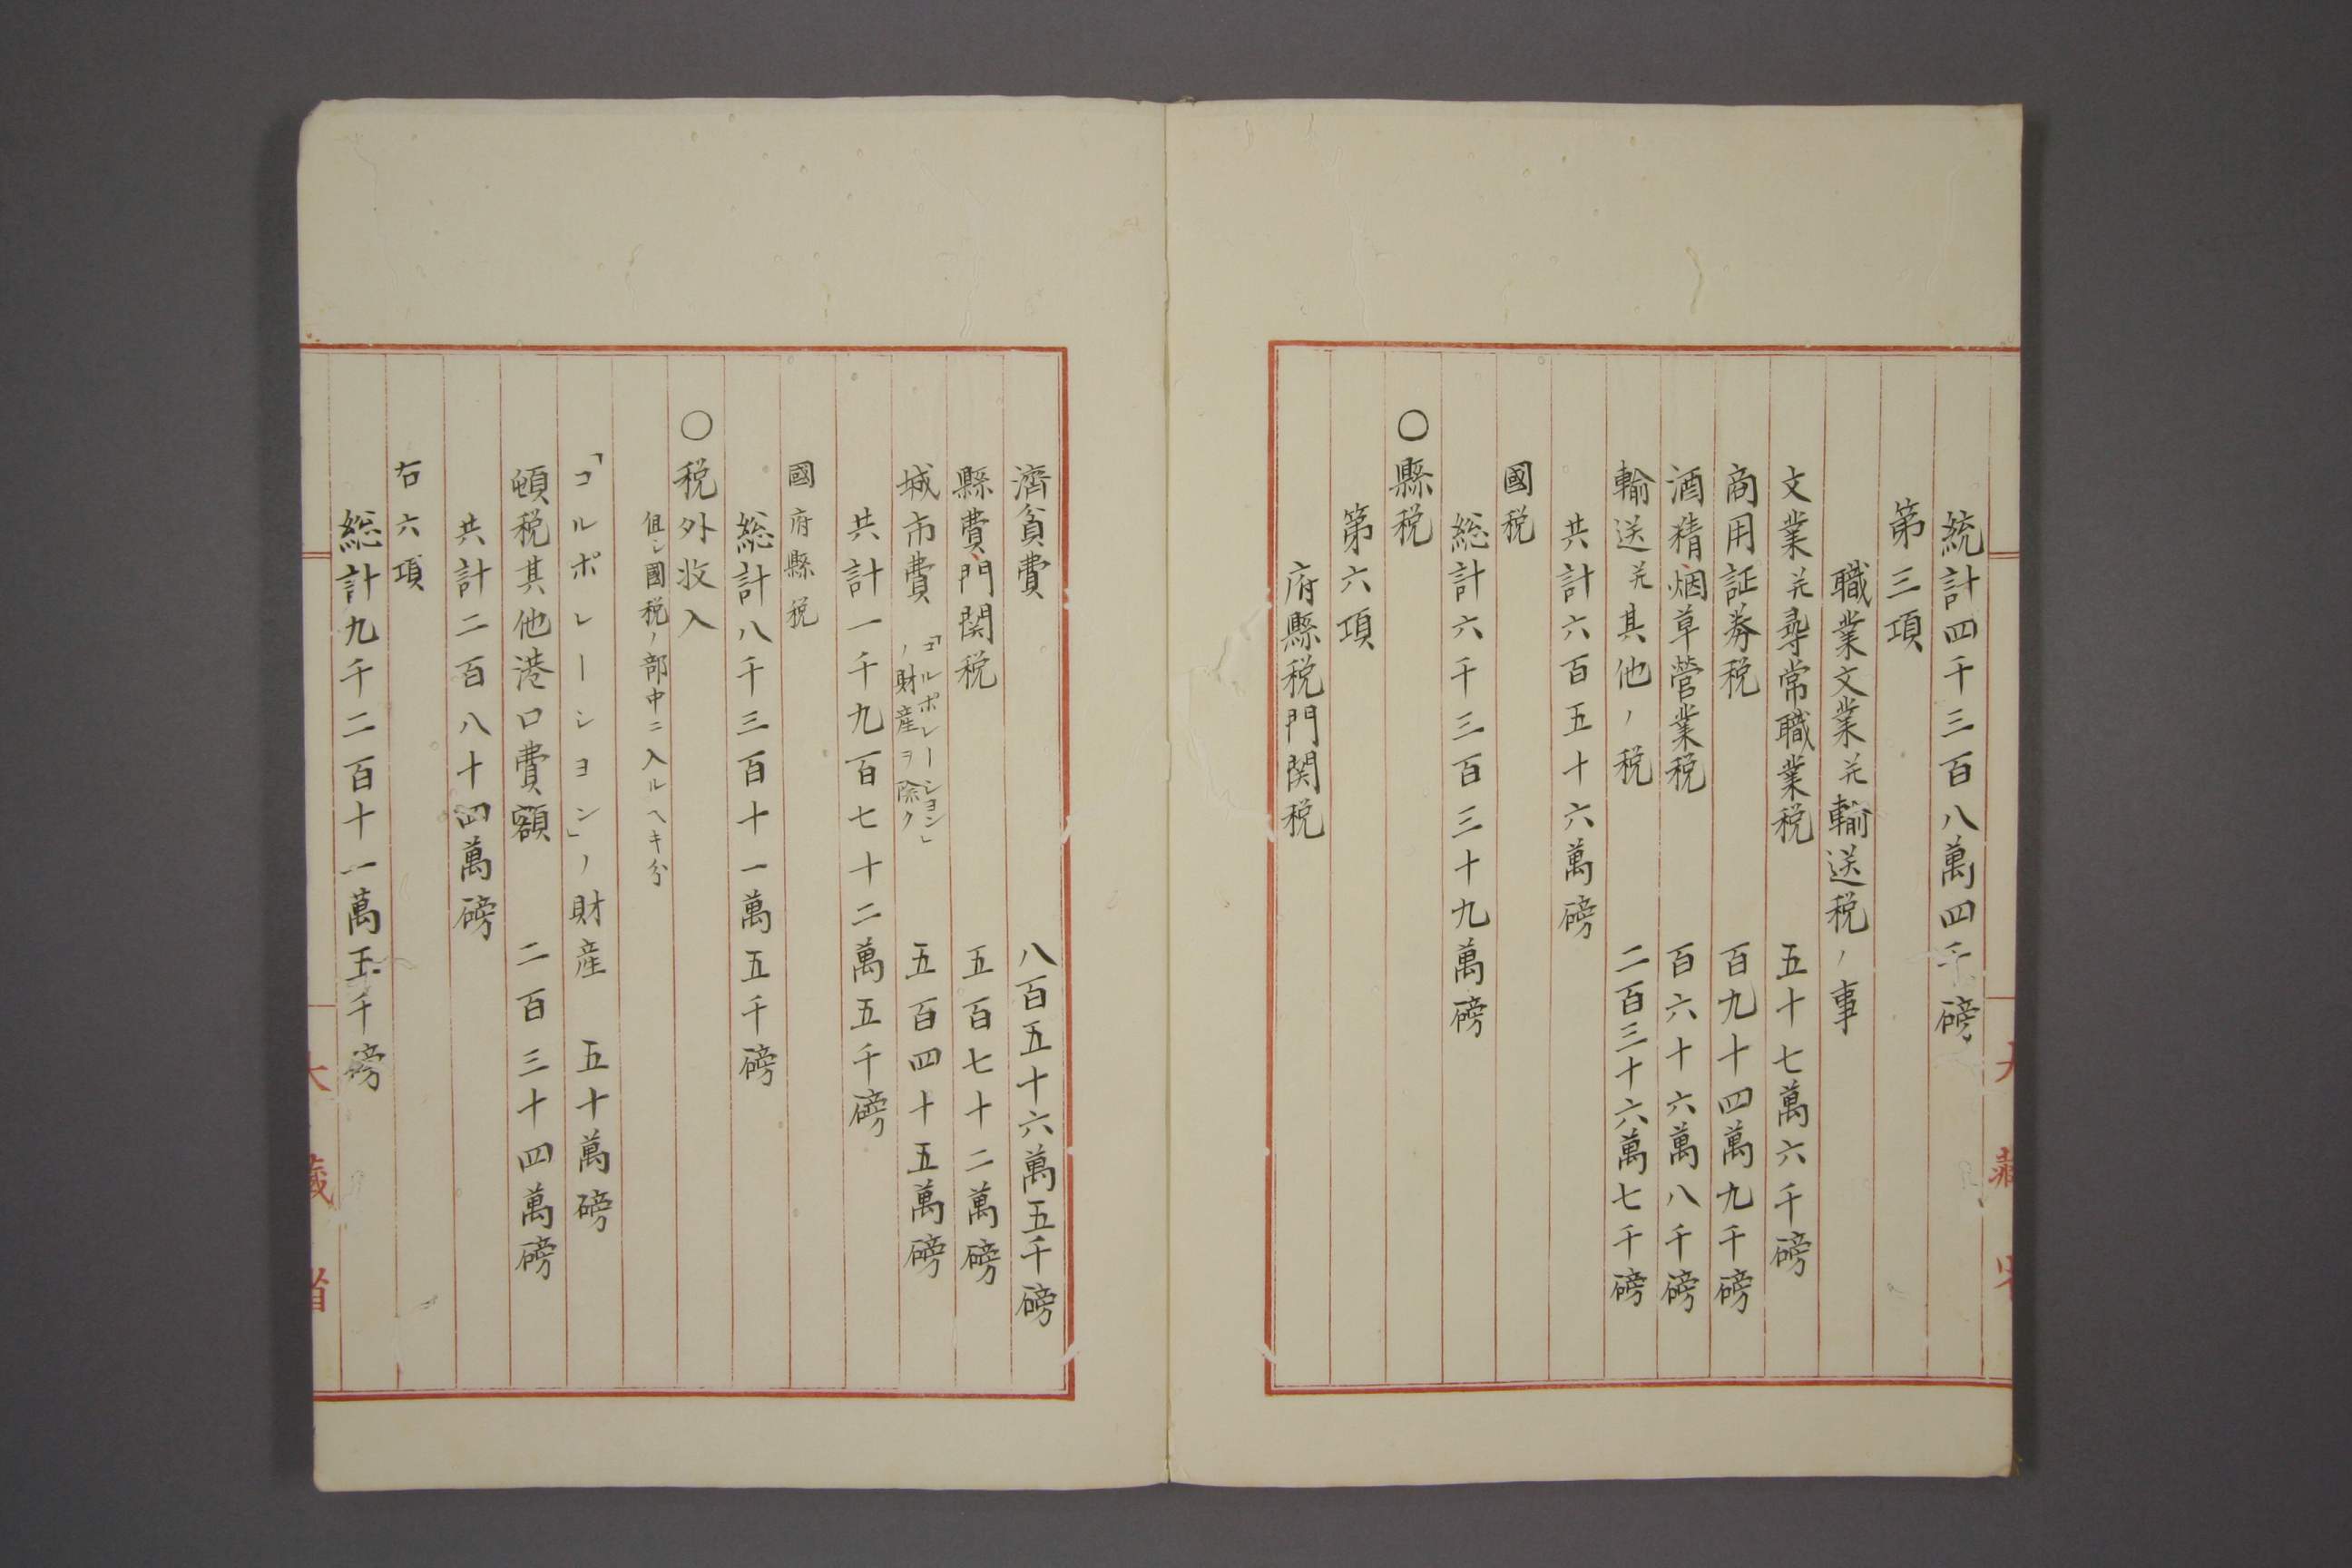 統計四千三百八萬四千磅
第三項
職業文業并輸送税ノ事
文業并尋常職業税 五十七萬六千磅
商用証券税 百九十四萬九千磅
酒精烟草營業税 百六十六萬八千磅
輸送并其他ノ税 二百三十六萬七千磅
共計六百五十六萬磅
國税
総計六千三百三十九萬磅
〇縣税
第六項
府縣税門関税
濟貧費 八百五十六萬五千磅
縣費門関税 五百七十二萬磅
城市費 「コルポレーション」ノ財産ヲ除ク 五百四十五萬磅
共計一千九百七十二萬五千磅
國府縣税
総計八千三百十一萬五千磅
〇税外收入
但シ國税ノ部中ニ入ルヘキ分
「コルポレーシヨン」ノ財産 五十萬磅
頓税其他港口費額 二百三十四萬磅
共計二百八十四萬磅
右六項
総計九千二百十一萬五千磅
大藏省